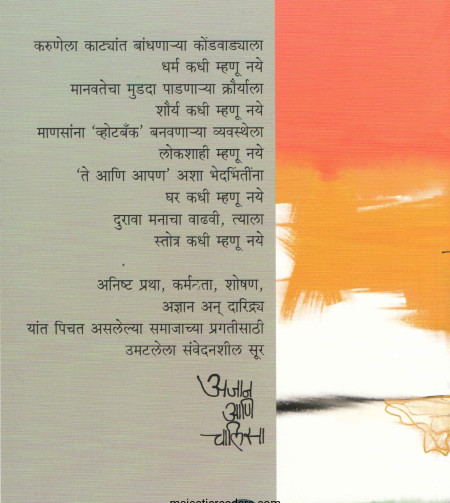 करुणेला काट्यांत बांधणाऱ्या कोंडवाड्याला
धर्म कधी म्हणू नये
मानवतेचा मुडदा पाडणाऱ्या क्रौर्याला
शौर्य कधी म्हणू नये
माणसांना ‘व्होटबँक’ बनवणाऱ्या व्यवस्थेला
लोकशाही म्हणू नये
‘ते आणि आपण’ अशा भेदभिंतींना
घर कधी म्हणू नये
दुरावा मनाचा वाढवी, त्याला
स्तोत्र कधी म्हणू नये
अनिष्ट प्रथा, कर्मठता, शोषण,
अज्ञान अन् दारिद्र्य
यांत पिचत असलेल्या समाजाच्या प्रगतीसाठी
उमटलेला संवेदनशील सूर
अजान
आणि
चालिसा
majesticreaders.com